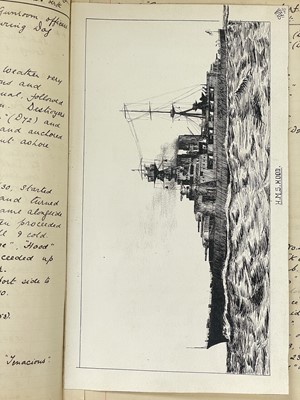 Gunroom officers
uring Dog
weather very
ons and
ual, followed
Destroyers
" (D72) and
and anchored
nt ashore
30. Started
and turned
ame alongside
en proceeded
& cold.
e". "Hood"
oceeded up
ort side to
30.
"Tenacious"
H.M.S. HOOD